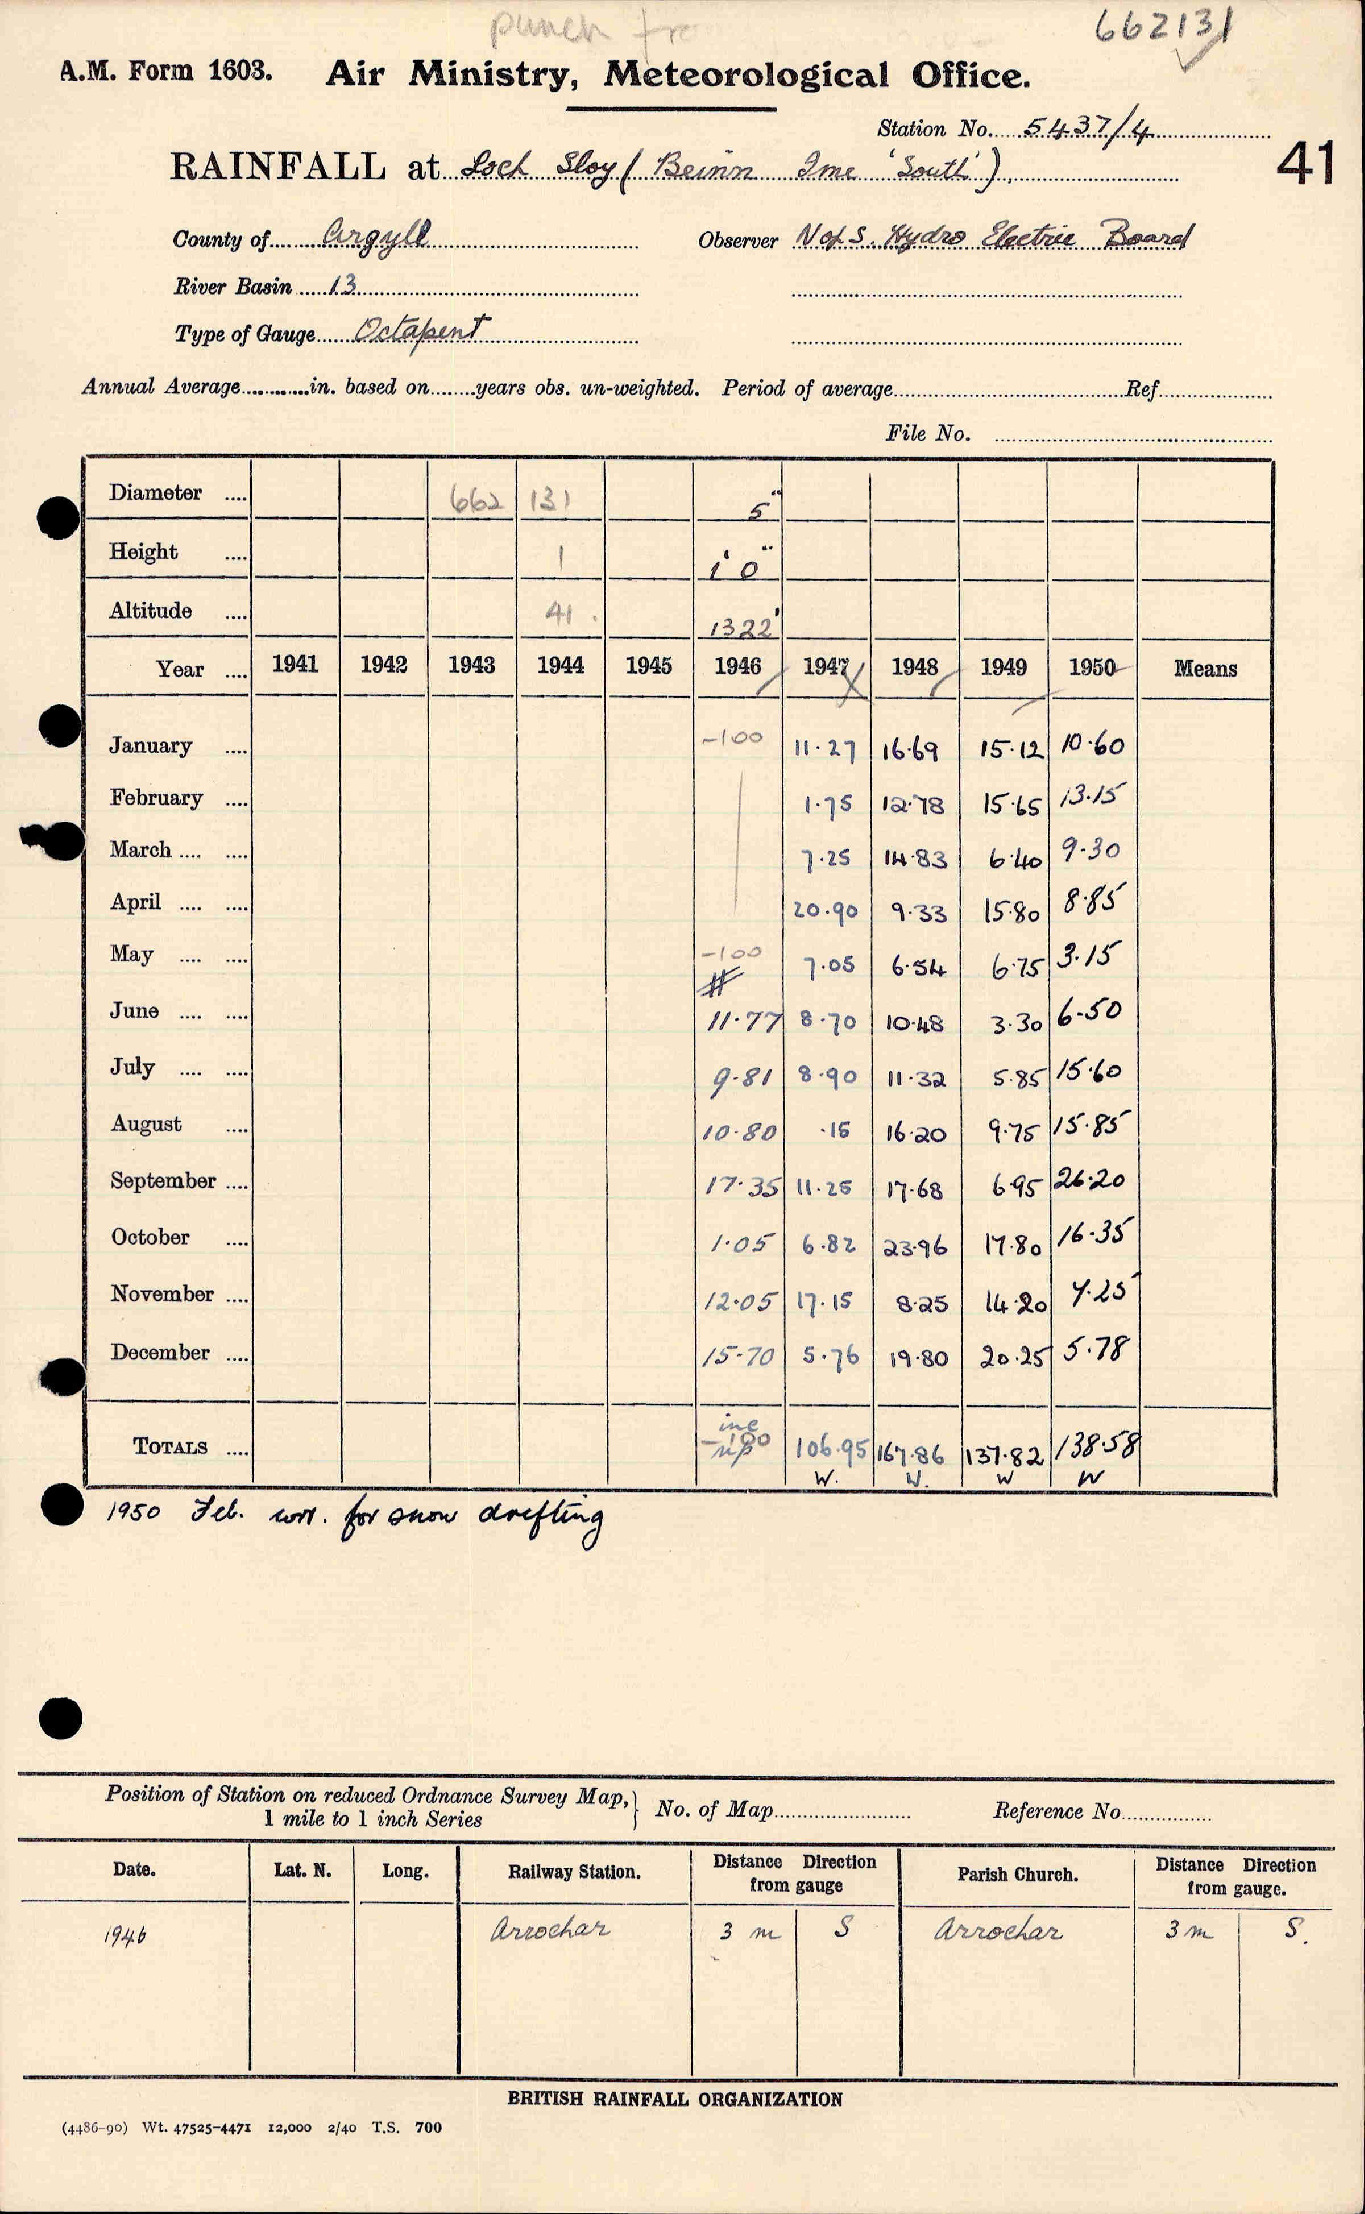 punch
662131
A.M. Form 1603. Air Ministry, Meteorological Office.
Station No. 5437/4
41
RAINFALL at Loch Sloy (Beinn Ime 'South').
County of Argyll Observer N of S. Hydro Electric Board
River Basin 13
Type of Gauge Octapent
Annual Average in. based on years obs. un-weighted. Period of average Ref.
File No.
Diameter 662 131 5"
Height 1 1' 0"
Altitude 41. 1322'
Year 1941 1942 1943 1944 1945 1946 1947 1948 1949 1950 Means
January -100 11.27 16.69 15.12 10.60
February 1.75 12.78 15.65 13.15
March 7.25 14.83 6.40 9.30
April 20.90 9.33 15.80 8.85
May -100 7.05 6.54 6.75 3.15
#
June 11.77 8.70 10.48 3.30 6.50
July 9.81 8.90 11.32 5.85 15.60
August 10.80 .15 16.20 9.75 15.85
September 17.35 11.25 17.68 6.95 26.20
October 1.05 6.82 23.96 17.80 16.35
November 12.05 17.15 8.25 14.20 7.25
December 15.70 5.76 19.80 20.25 5.78
inc
TOTALS -100 106.95 167.86 137.82 138.58
W. W. W W
1950 Feb. corr. for snow drifting
Position of Station on reduced Ordnance Survey Map, No. of Map Reference No.
1 mile to 1 inch Series
Date. Lat. N. Long. Railway Station. Distance Direction from gauge Parish Church. Distance Direction from gauge.
1946 Arrochar 3 m S Arrochar 3 m S.
BRITISH RAINFALL ORGANIZATION
(4486-90) Wt. 47525-4471 12,000 2/40 T.S. 700